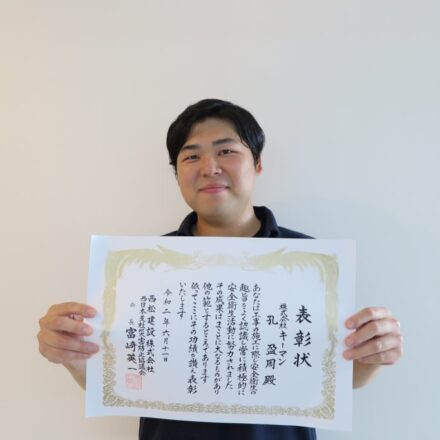 表彰状
株式会社キーマン
孔 盈周 殿
あなたは工事の施工に際し安全衛生の
趣旨をよく認識し常に積極的に
安全衛生活動に努力されました
その成果はまことに大なるものがあり
他の範とするところであります
依ってここにその功績を讃え表彰
いたします
令和二年六月十一日
西松建設株式会社
西日本支社災害防止協議会
会長 富崎英一